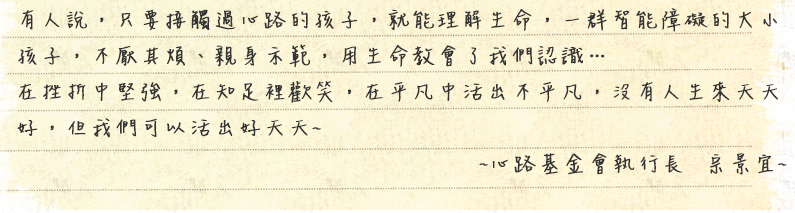 有人說，只要接觸過心路的孩子，就能理解生命，一群智能障礙的大小
孩子，不厭其煩、親身示範，用生命教會了我們認識…
在挫折中堅強，在知足裡歡笑，在平凡中活出不平凡，沒有人生來天天
好，但我們可以活出好天天~
~心路基金會執行長 宗景宜~